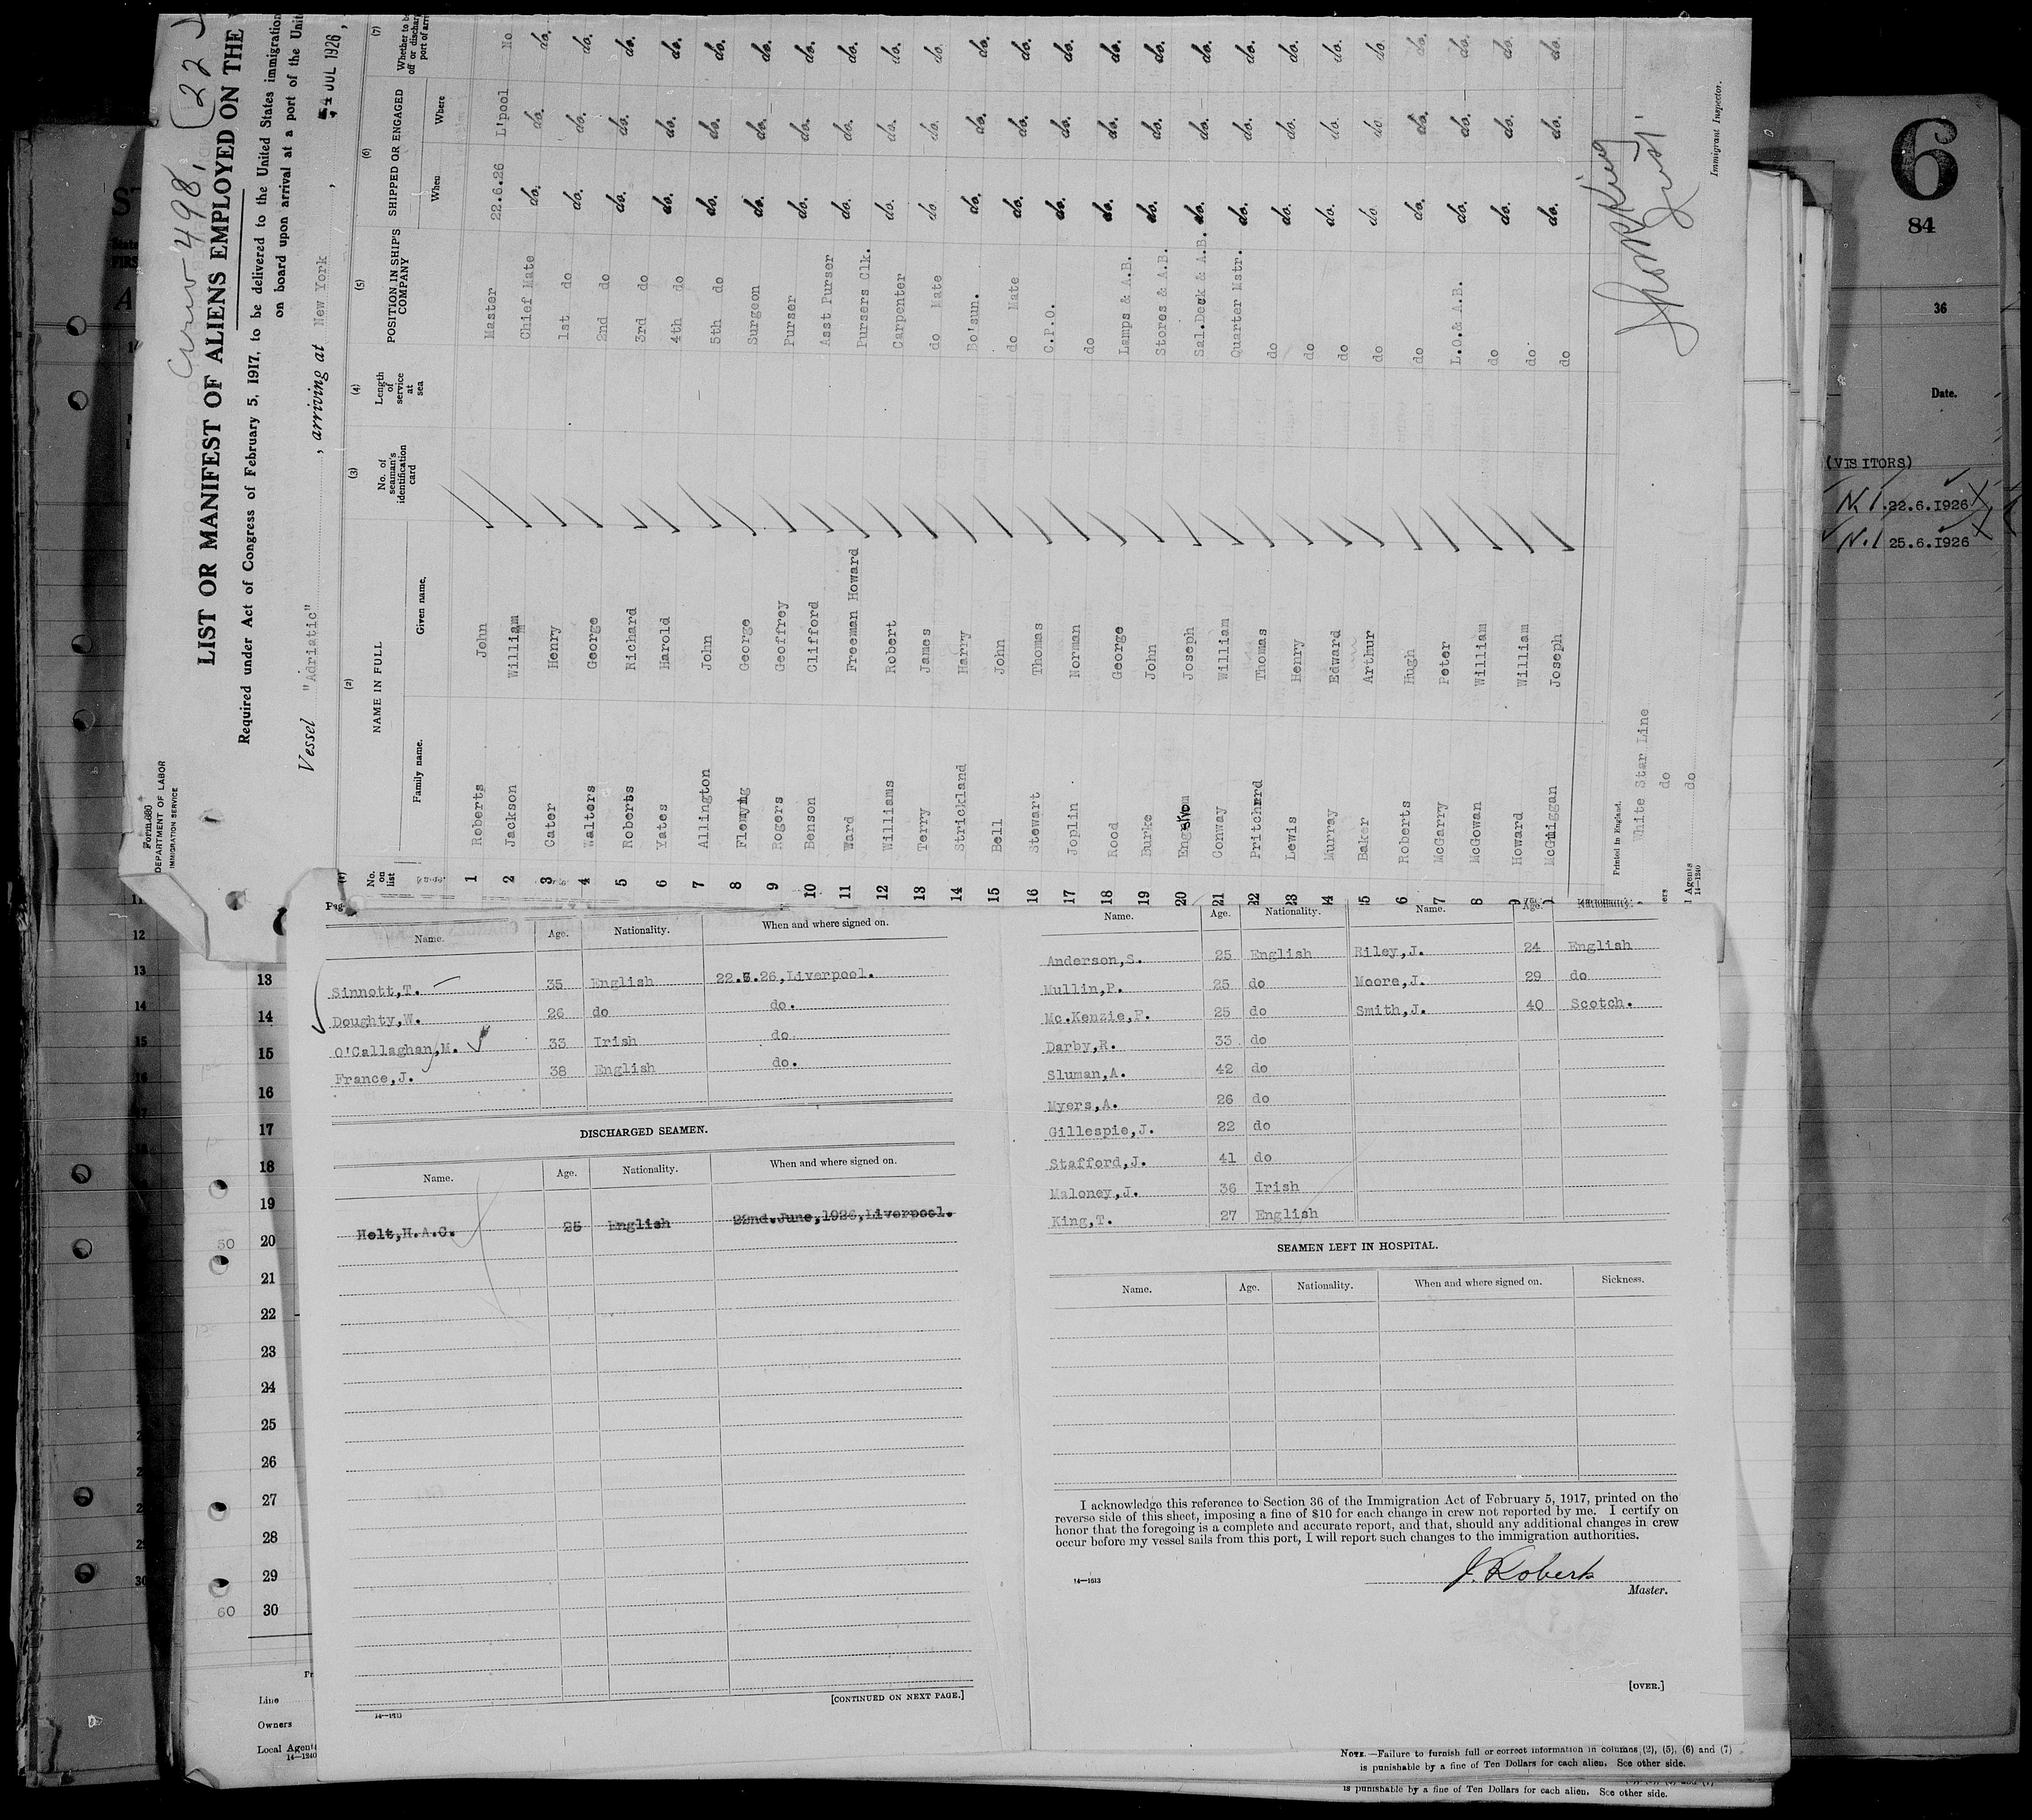 Form 680
DEPARTMENT OF LABOR
IMMIGRATION SERVICE
Crew-498,
(22
LIST OR MANIFEST OF ALIENS EMPLOYED ON THE
Required under Act of Congress of February 5, 1917, to be delivered to the United States immigration
on board upon arrival at a port of the Unit
Vessel "Adriatic", arriving at New York, 4 JUL 1926,
(1) (2) (3) (4) (5) (6) (7)
No. on list NAME IN FULL No. of seaman's identification card Length of service at sea POSITION IN SHIP'S COMPANY SHIPPED OR ENGAGED Whether to be
off or discharg
port of arri
Family name. Given name. When Where
1 Roberts John Master 22.6.26 L'pool No
2 Jackson William Chief Mate do. do. do.
3 Cater Henry 1st do do. do. do.
4 Walters George 2nd do do. do. do.
5 Roberts Richard 3rd do do. do. do.
6 Yates Harold 4th do do. do. do.
7 Allington John 5th do do. do. do.
8 Flemyng George Surgeon do. do. do.
9 Rogers Geoffrey Purser do. do. do.
10 Benson Clifford Asst Purser do. do. do.
11 Ward Freeman Howard Pursers Clk. do. do. do.
12 Williams Robert Carpenter do. do. do.
13 Terry James do Mate do. do. do.
14 Strickland Harry Bo'sun. do. do. do.
15 Bell John do Mate do. do. do.
16 Stewart Thomas C.P.O. do. do. do.
17 Joplin Norman do do. do. do.
18 Rood George Lamps & A.B. do. do. do.
19 Burke John Stores & A.B. do. do. do.
20 Joseph Sal.Deck & A.B. do. do. do.
21 Conway William Quarter Mstr. do. do. do.
22 Pritchard Thomas do do. do. do.
23 Lewis Henry do do. do. do.
4 Murray Edward do do. do. do.
5 Baker Arthur do do. do. do.
6 Roberts Hugh do do. do. do.
7 McGarry Peter L.O.& A.B. do. do. do.
8 McGowan William do do. do. do.
9 Howard William do do. do. do.
McGuigan Joseph do do. do. do.
Printed in England.
White Star Line
ers do
l Agents do
14—1240
Immigrant Inspector.
Name. Age. Nationality. When and where signed on.
Sinnott,T. 35 English 22.6.26,Liverpool.
Doughty,W. 26 do do.
O'Callaghan,M. 33 Irish do.
France,J. 38 English do.
DISCHARGED SEAMEN.
Name. Age. Nationality. When and where signed on.
Holt,H.A.C. 25 English 22nd.June,1926,Liverpool.
[CONTINUED ON NEXT PAGE.]
14—1213
Name. Age. Nationality. Name. Age. Nationality.
Anderson,S. 25 English Riley,J. 24 English
Mullin,P. 25 do Moore,J. 29 do
Mc.Kenzie,F. 25 do Smith,J. 40 Scotch.
Darby,R. 33 do
Sluman,A. 42 do
Myers,A. 26 do
Gillespie,J. 22 do
Stafford,J. 41 do
Maloney,J. 36 Irish
King,T. 27 English
SEAMEN LEFT IN HOSPITAL.
Name. Age. Nationality. When and where signed on. Sickness.
I acknowledge this reference to Section 36 of the Immigration Act of February 5, 1917, printed on the
reverse side of this sheet, imposing a fine of $10 for each change in crew not reported by me. I certify on
honor that the foregoing is a complete and accurate report, and that, should any additional changes in crew
occur before my vessel sails from this port, I will report such changes to the immigration authorities.
J. Roberts
Master.
14—1613
[OVER.]
12
13
14
15
16
13
14
15
16
17
18
19
20
21
22
23
24
25
26
27
28
29
30
50
60
Line
Owners
Local Agents
14—1240
NOTE.—Failure to furnish full or correct information in columns (2), (5), (6) and (7)
is punishable by a fine of Ten Dollars for each alien. See other side.
is punishable by a fine of Ten Dollars for each alien. See other side.
6
84
36
Date.
(VISITORS)
N.1. 22.6.1926
N.1 25.6.1926